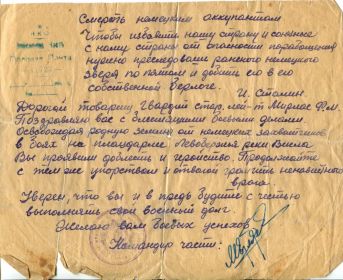 НКО
Полевая Почта
Смерть немецким аккупантам
Чтобы избавить нашу страну и союзные
с нами страны от опасности порабощения
нужно преследовать раненого немецкого
зверя по пятам и добить его в его
собственной берлоге.
И. Сталин
Дорогой товарищ, Гвардии Стар. лей-т Ф.М.
Поздравляю вас с блестящими боевыми делами.
Освобождая родную землю от немецких захватчиков
в боях на плацдарме Левобережья реки Висла
Вы проявили доблесть и геройство. Продолжайте
с тем же упорством и отвагой громить ненавистного
врага.
Уверен, что вы и в предь будите с честью
выполнять свой военный долг.
Желаю вам боевых успехов
Командир части: